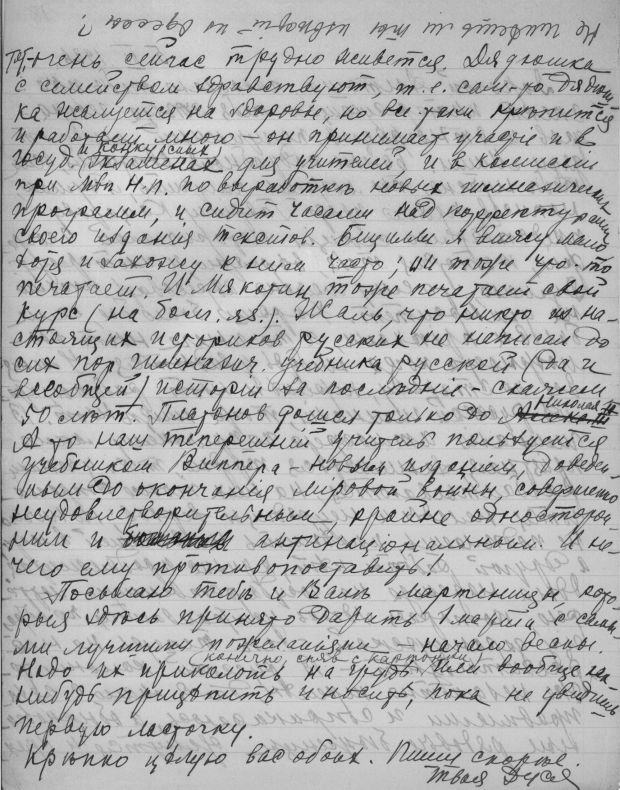 Не имѣешь ли ты извѣстій из Одессы?
очень сейчас трудно живется. Дядюшка
с семейством здравствуют, т.е. сам-то дядюш
ка жалуется на здоровье, но все таки крѣпится
и работает много – он принимает участіе и в
госуд. и конкурсных экзаменах для учителей, и в комиссіи
при Мин. Н.П. по выработкѣ новых гимназических
программ, и сидит часами над корректурами
своего изданія текстов. Бицилли я вижу мало
хотя и захожу к ним часто; они тоже что-то
печатают. И Мякотин тоже печатает свой
курс (на болг. яз.). Жаль, что никто из на-
стоящих историков русских не написал до
сих пор гимназич. учебника русской (да и
всеобщей) исторіи за послѣдніе – скажем
50 лѣт. Платонов дошел только до Николая II
А то наш теперешній учитель пользуется
учебником Виппера – новым изданіем, доведен-
ным до окончанія міровой войны, совершенно
неудовлетворительным, крайне односторон-
ним и антинаціональным. И не-
чего ему противопоставить!
Посылаю тебѣ и Валѣ мартеницы, кото-
рыя здѣсь принято дарить 1 марта с самы-
ми лучшими пожеланіями – начало весны.
Надо их приколоть на грудь конечно сняв с карточки или вообще как
нибудь прицѣпить и носить, пока не увидишь
первую ласточку.
Крѣпко цѣлую вас обоих. Пиши скорѣе.
Твоя Дуся